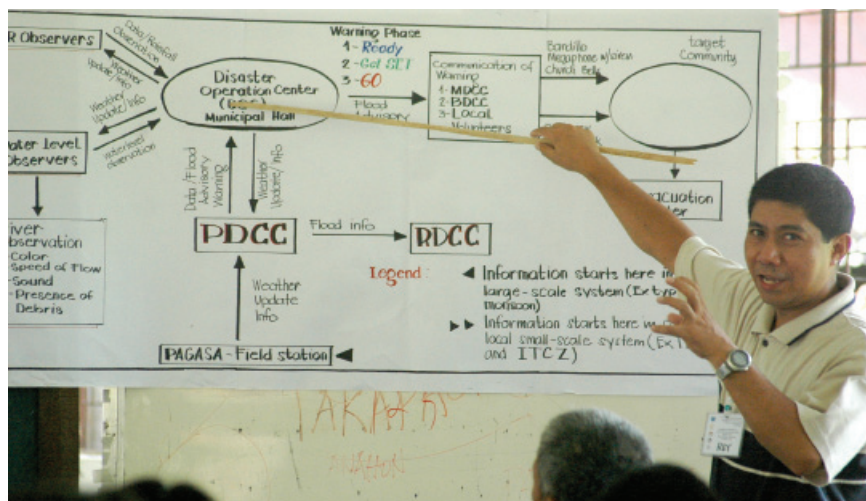 R Observers
Data/Rainfall
Observation
Weather
Update/Info
Weather
Update/Info
Water level
Observers
Waterlevel
observation
River
Observation
Color
Speed of Flow
Sound
Presence of
Debris
Disaster
Operation Center
Municipal Hall
Warning Phase
1- Ready
2- Get SET
3- GO
Flood
Advisory
Communication of
Warning
1- MDCC
2- BDCC
3- Local
Volunteers
Bandillo
Megaphone w/siren
Church Bells
target
Community
Data/Flood
Advisory
Warning
Weather
Update/Info
PDCC
Flood info
RDCC
Weather
Update
Info
PAGASA - Field station
Legend:
Information starts here in
large-scale system (Ex typ
monsoon)
Information starts here in
local small-scale system (Ex T
and ITCZ)